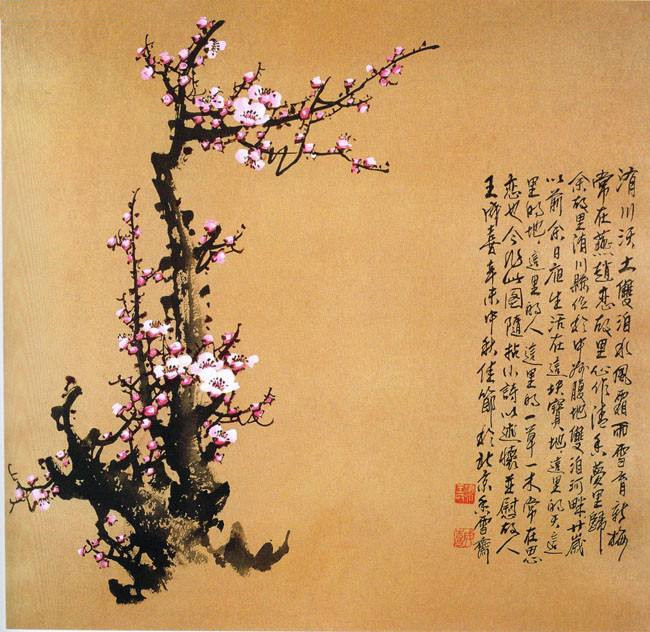 洧川沃土雙洎水風霜雨雪育新梅
常在燕趙戀故里心作清香夢里歸
余故里洧川縣位於中州腹地雙洎河畔廿歲
以前余日夜生活在這块寶地這里的天這
里的地這里的人這里的一草一木常在思
戀也今作此图隨拈小詩以述懷並慰故人
王成喜辛未中秋佳節於北京香雪齋